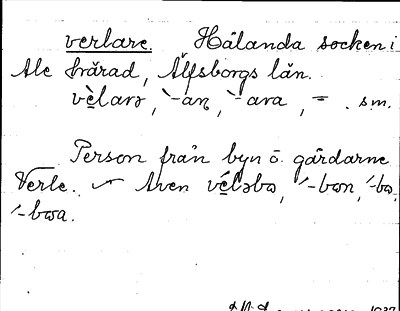 verlare. Hålanda socken i
Ale härad, Älfsborgs län.
vè̠larə, `-aɲ, `-ara, =. sm.
Person från byn o. gårdarne
Verle. Även vé̠ləbω, ´-bωn, ´-bω,
´-bωa.
1937